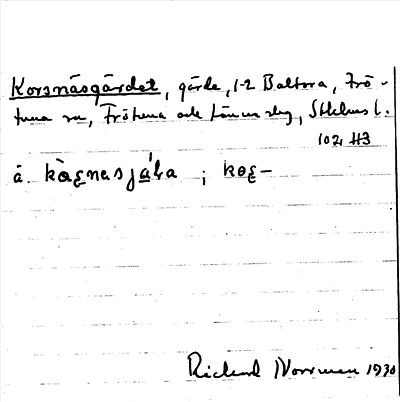 Korsnäsgärdet, gärde, 1-2 Baltora, Frö-
tuna sn, Frötuna och Länna slg, Sthlms l.
102, H3
å. kɷṣnasjǻḷa ; koṣ-
Richard Norrman 1930